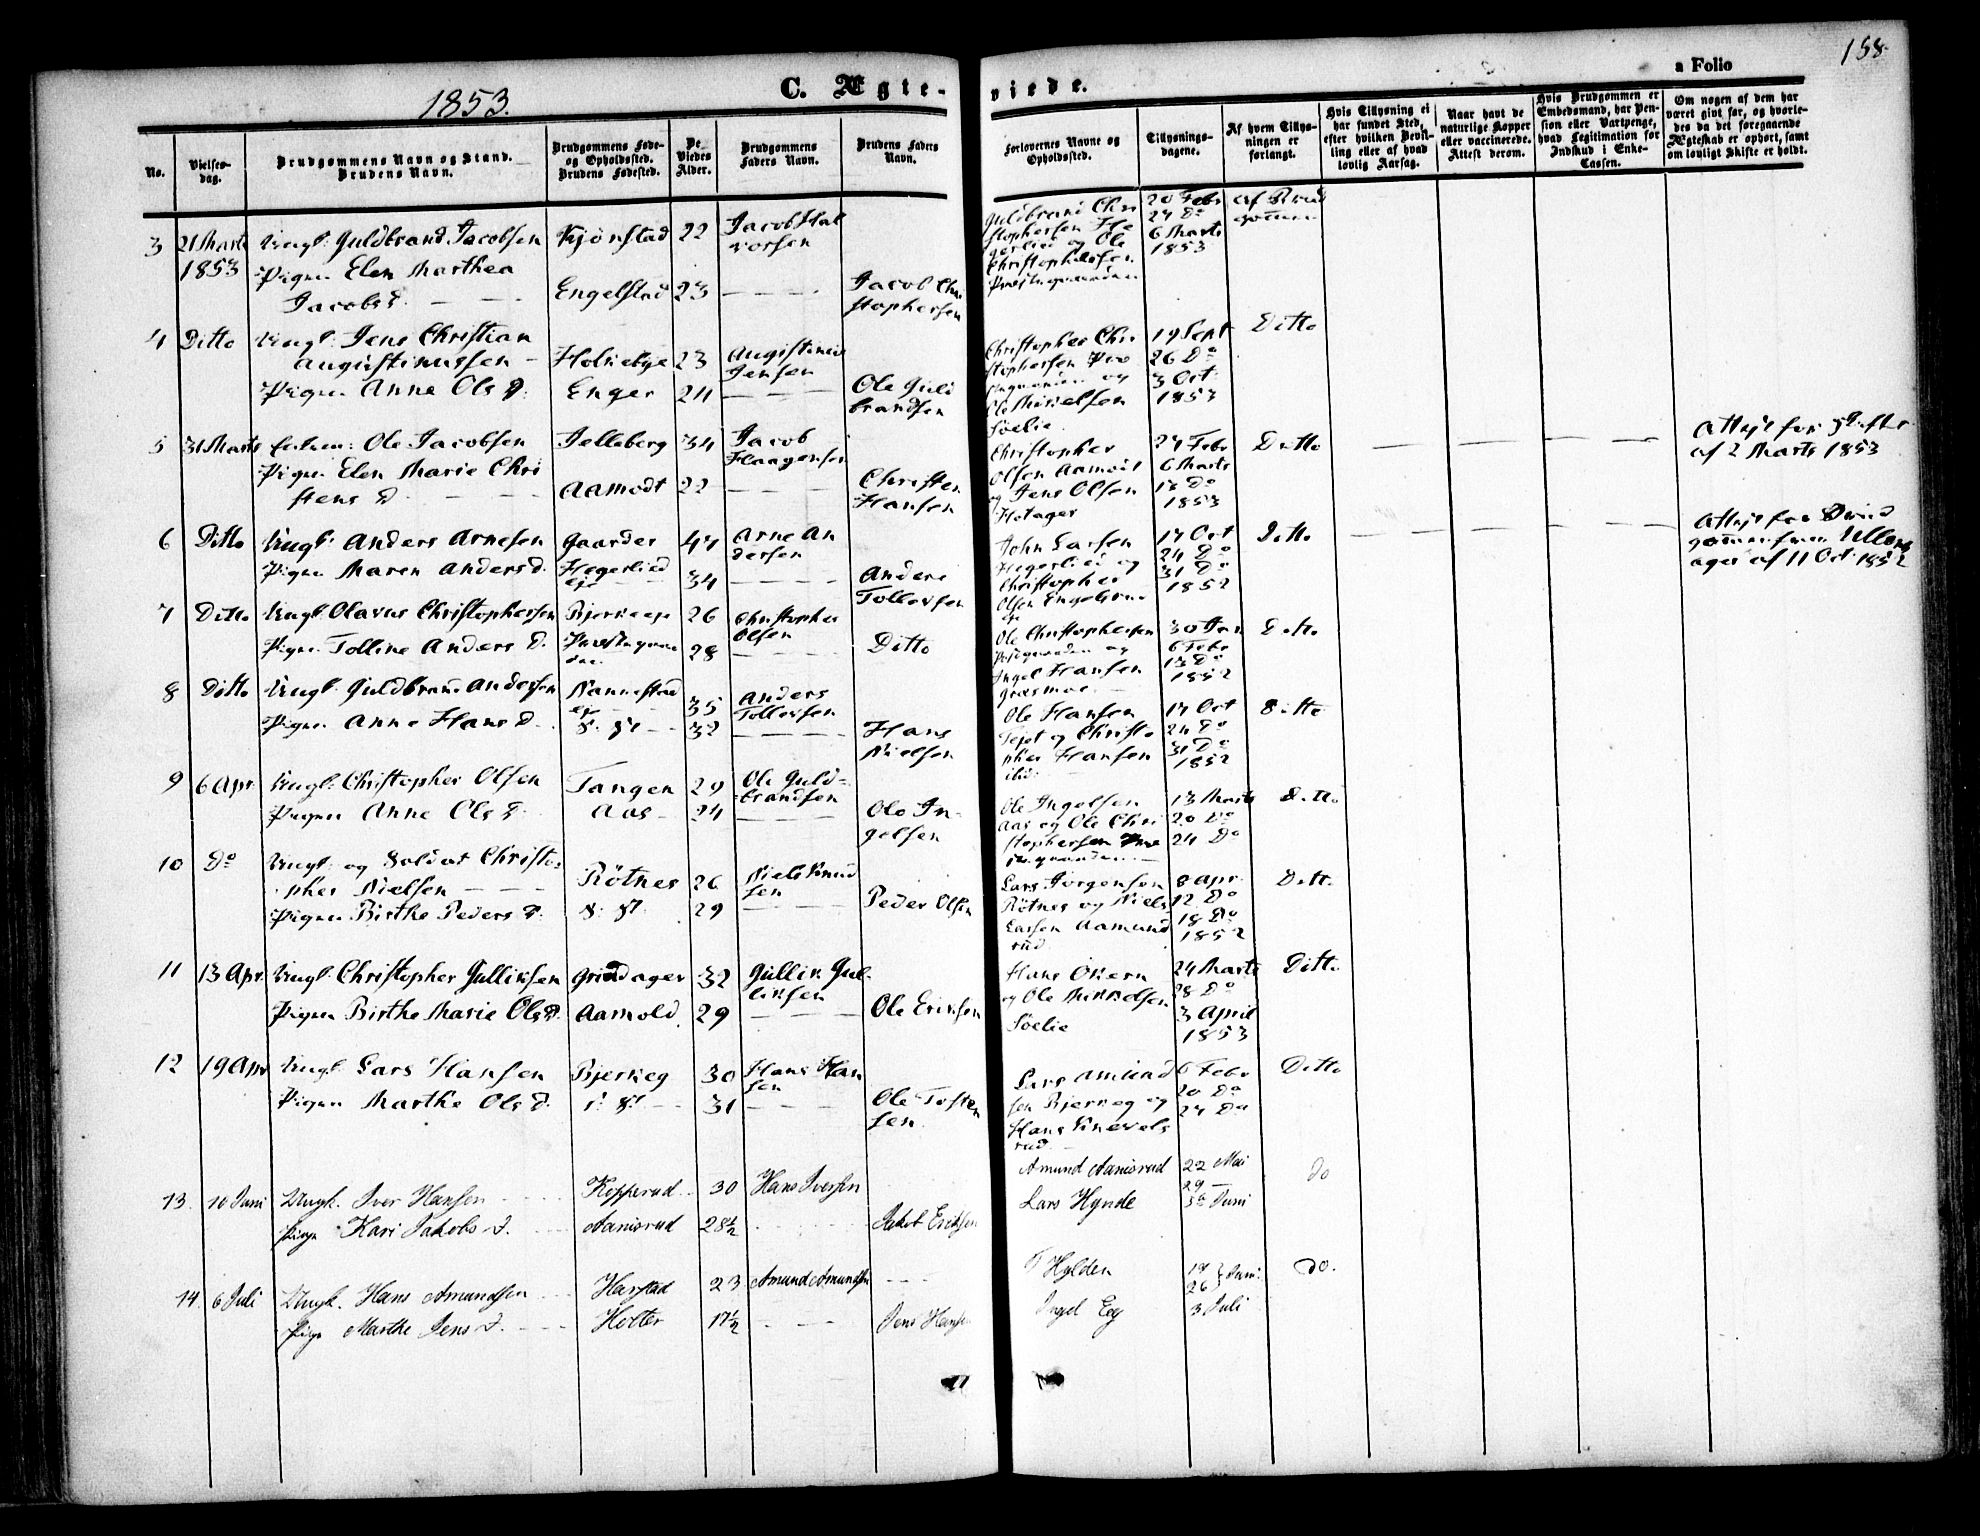 158
1853.
C. Ægte-
viede.
a Folio
No.
Vielses-
dag.
Brudgommens Navn og Stand.
Brudens Navn.
Brudgommens Føde-
og Opholdssted.
Brudens Fødested.
De
Viedes
Alder.
Brudgommens
Faders Navn.
Brudens Faders
Navn.
Forlovernes Navne og
Opholdssted.
Tillysnings-
dagene.
Af hvem Tillys-
ningen er
forlangt.
Hvis Tillysning ei
har fundet Sted,
efter hvilken Bevil-
ling eller af hvad
lovlig Aarsag.
Naar havt de
naturlige Kopper
eller vaccinerede.
Attest derom.
Hvis Brudgommen er
Embedsmand, har Pen-
sion eller Vartpenge,
hvad Legitimation for
Indskud i Enke-
Cassen.
Om nogen af dem har
været gift før, og hvorle-
des da det foregaaende
Ægteskab er ophørt, samt
om lovligt Skifte er holdt.
3 21 Marts Ungk: Guldbrand Jacobsen Kjønstad 22 Jacob Hal
1853 Pigen Elen Marthea vorsen
Jacobs D. Engelstad 23 Jacob Chri
stophersen
Guldbrand Chri 20 Febr Af Brud
stophersen 27 Do gommen
og Ole 6 Marts
Christophersen 1853
Præstegaarden
4 Ditto Ungk: Jens Christian
Augustinussen Holmebye 23 Augustinus
Jensen
Pigen Anne Ols D. Enger 24 Ole Guld
brandsen
Christopher Chri 19 Sept Ditto
stophersen 26 Do
og 3 Oct
Ole Mikkelsen 1853
Søelie
5 31 Marts Enkem: Ole Jacobsen Jelleberg 34 Jacob
Haagensen
Pigen Elen Marie Chri
stens D. Aamodt 22 Christen
Hansen
Christopher 27 Febr Ditto
Olsen Aamodt 6 Marts
og Jens Olsen 13 Do
Hotager 1853
Attest for Skifte
af 2 Marts 1853
6 Ditto Ungk: Anders Arnesen Gaarder 47 Arne An
dersen
Pigen Maren Anders D. Hegerlied
eje 34 Anders
Tollevsen
John Larsen 17 Oct Ditto
Hegerlied og 24 Do
Christopher 31 Do
Olsen 1852
eje
Attest fra Brud
gommen fra Ullens
ager af 11 Oct 1852
7 Ditto Ungk: Olavus Christophersen Bjerkeeje 26 Christopher
Olsen
Pigen Tolline Anders D. Præstegaar
den 28 Ditto
Ole Christophersen 30 Jan Ditto
og 6 Febr
Ingel Hansen 13 Do
Græsmoe 1852
8 Ditto Ungk: Guldbrand Andersen Nannestad
eje 35 Anders
Tollevsen
Pigen Anne Hans D. 32 Hans
Nielsen
Ole Hansen 17 Oct Ditto
og Christo 24 Do
pher Hansen 31 Do
ibid: 1852
9 6 Apr: Ungk: Christopher Olsen Tangen 29 Ole Guld=
brandsen
Pigen Anne Ols D. Aas 24 Ole In-
gelsen
Ole Ingelsen 13 Marts Ditto
Aas og Ole Chri 20 Do
stophersen 24 Do
10 Do Ungk: og Soldat Christo-
pher Nielsen Rötnes 26 Niels Knud
sen
Pigen Birthe Peders D. 29 Peder Olsen
Lars Jørgensen 8 Apr. Ditto
Rötnes og Niels 12 Do
Larsen Aamund 18 Do
rud 1852
11 13 Apr. Ungk: Christopher Gulliksen Grindager 32 Gullik Gul
liksen
Pigen Birthe Marie Ols D. Aamold 29 Ole Eriksen
Hans Økern 24 Marts Ditto
og Ole Mikkelsen 28 Do
Søelie 3 April
1853
12 19 Apr Ungk: Lars Hansen Bjerkeg 30 Hans Han
sen
Pigen Marthe Ols D. 31 Ole Tosten
sen
Lars Amund 6 Febr Ditto
sen Bjerkeg og 20 Do
Hans 27 Do
rud
13. 10 Juni Ungk. Iver Hansen Kopperud 30 Hans Iversen
Pige Kari Jakobs D. Aanisrud 28½ Jakob Eriksen
Amund Aanisrud 22 Mai do
29 —
Lars Hynde 5te Juni
14. 6 Juli Ungk. Hans Amundsen Harstad 23 Amund Amundsen
Pige Marthe Jens D. Holter 17½ Jens Hansen
T Hylden 19 Juni do.
26
Ingel Eeg 3 Juli